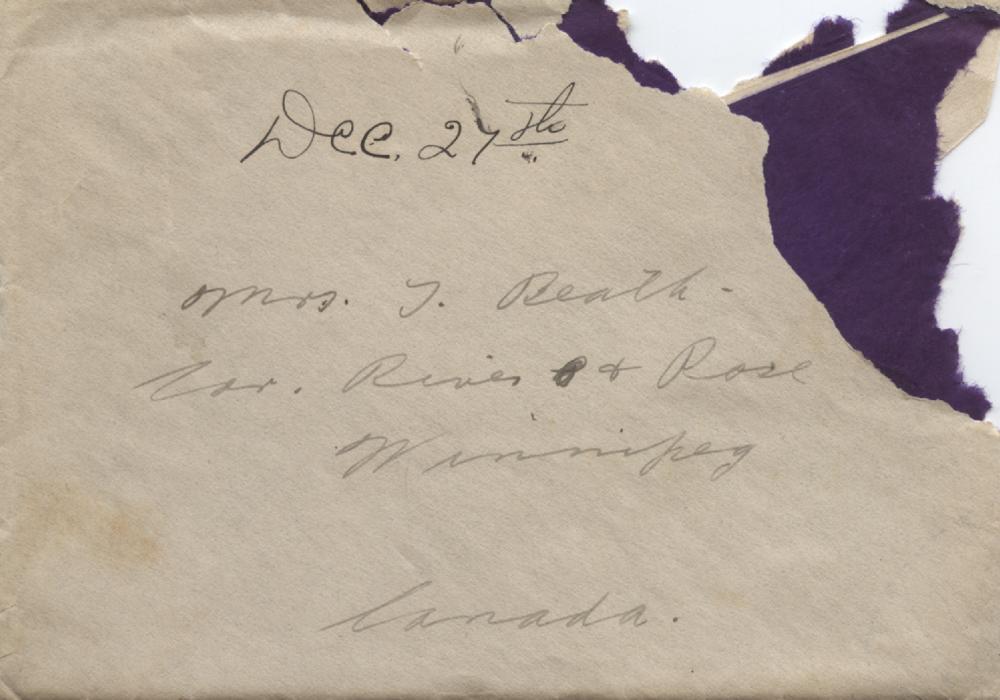 Dec. 27th
Mrs. T. Beath.
Cor. River & Rose
Winnipeg
Canada.